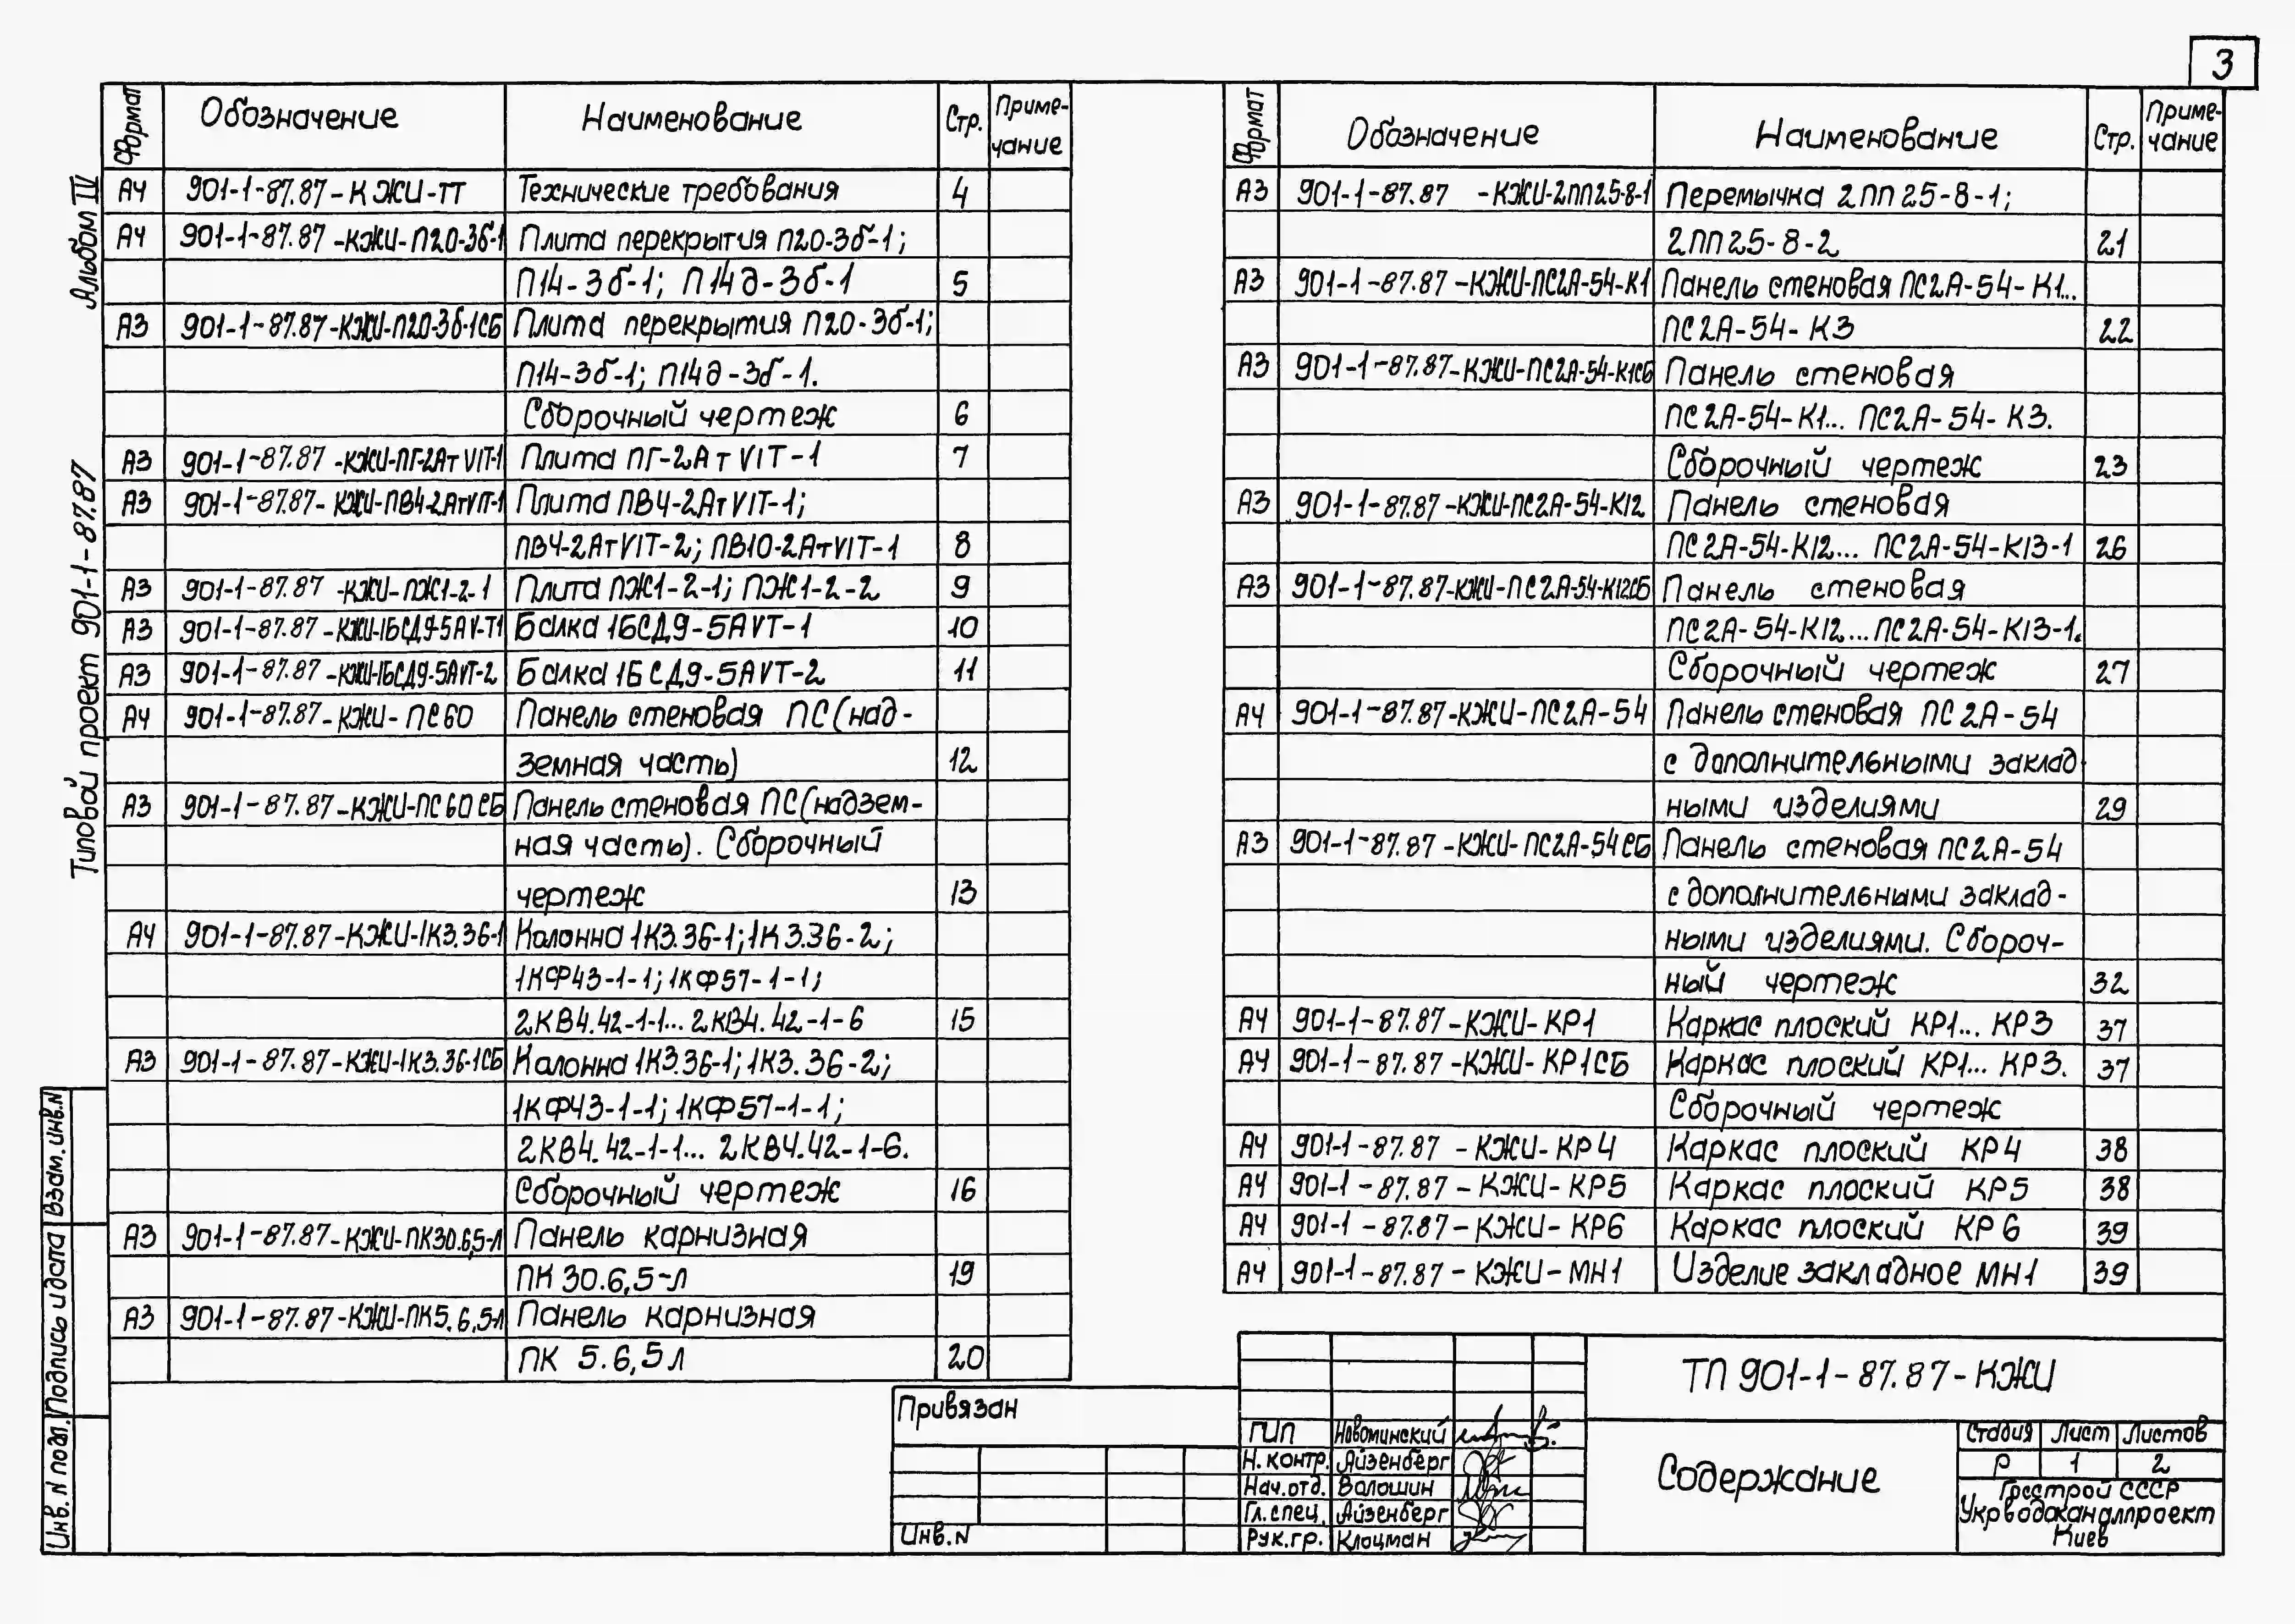 3
Альбом IV
Типовой проект 901-1-87.87
Формат Обозначение Наименование Стр. Приме-
чание
А4 901-1-87.87-КЖИ-ТТ Технические требования 4
А4 901-1-87.87-КЖИ-П20-3б-1 Плита перекрытия П20-3б-1;
П14-3б-1; П14д-3б-1 5
А3 901-1-87.87-КЖИ-П20-3б-1СБ Плита перекрытия П20-3б-1;
П14-3б-1; П14д-3б-1.
Сборочный чертеж 6
А3 901-1-87.87-КЖИ-ПГ-2АтVIТ-1 Плита ПГ-2АтVIТ-1 7
А3 901-1-87.87-КЖИ-ПВ4-2АтVIТ-1 Плита ПВ4-2АтVIТ-1;
ПВ4-2АтVIТ-2; ПВ10-2АтVIТ-1 8
А3 901-1-87.87-КЖИ-ПЖ1-2-1 Плита ПЖ1-2-1; ПЖ1-2-2 9
А3 901-1-87.87-КЖИ-1БСД9-5АV-Т1 Балка 1БСД9-5АVТ-1 10
А3 901-1-87.87-КЖИ-1БСД9-5АVТ-2 Балка 1БСД9-5АVТ-2 11
А4 901-1-87.87-КЖИ-ПС60 Панель стеновая ПС(над-
земная часть) 12
А3 901-1-87.87-КЖИ-ПС60СБ Панель стеновая ПС(надзем-
ная часть). Сборочный
чертеж 13
А4 901-1-87.87-КЖИ-1К3.36-1 Колонна 1К3.36-1; 1К3.36-2;
1КФ43-1-1; 1КФ57-1-1;
2КВ4.42-1-1... 2КВ4.42-1-6 15
А3 901-1-87.87-КЖИ-1К3.36-1СБ Колонна 1К3.36-1; 1К3.36-2;
1КФ43-1-1; 1КФ57-1-1;
2КВ4.42-1-1... 2КВ4.42-1-6.
Сборочный чертеж 16
А3 901-1-87.87-КЖИ-ПК30.6,5-Л Панель карнизная
ПК 30.6,5-Л 19
А3 901-1-87.87-КЖИ-ПК5.6,5Л Панель карнизная
ПК 5.6,5Л 20
Формат Обозначение Наименование Стр. Приме-
чание
А3 901-1-87.87-КЖИ-2ПП25-8-1 Перемычка 2ПП25-8-1;
2ПП25-8-2 21
А3 901-1-87.87-КЖИ-ПС2А-54-К1 Панель стеновая ПС2А-54-К1...
ПС2А-54-К3 22
А3 901-1-87.87-КЖИ-ПС2А-54-К1СБ Панель стеновая
ПС2А-54-К1... ПС2А-54-К3.
Сборочный чертеж 23
А3 901-1-87.87-КЖИ-ПС2А-54-К12 Панель стеновая
ПС2А-54-К12... ПС2А-54-К13-1 26
А3 901-1-87.87-КЖИ-ПС2А-54-К12СБ Панель стеновая
ПС2А-54-К12... ПС2А-54-К13-1.
Сборочный чертеж 27
А4 901-1-87.87-КЖИ-ПС2А-54 Панель стеновая ПС2А-54
с дополнительными заклад-
ными изделиями 29
А3 901-1-87.87-КЖИ-ПС2А-54СБ Панель стеновая ПС2А-54
с дополнительными заклад-
ными изделиями. Сбороч-
ный чертеж 32
А4 901-1-87.87-КЖИ-КР1 Каркас плоский КР1... КР3 37
А4 901-1-87.87-КЖИ-КР1СБ Каркас плоский КР1... КР3. 37
Сборочный чертеж
А4 901-1-87.87-КЖИ-КР4 Каркас плоский КР4 38
А4 901-1-87.87-КЖИ-КР5 Каркас плоский КР5 38
А4 901-1-87.87-КЖИ-КР6 Каркас плоский КР6 39
А4 901-1-87.87-КЖИ-МН1 Изделие закладное МН1 39
Взам. инв.N
Подпись и дата
Инв. N подл.
Привязан
Инв.N
ГИП Новоминский
Н. контр. Айзенберг
Нач.отд. Волошин
Гл. спец. Айзенберг
Рук.гр. Клоцман
ТП 901-1-87.87-КЖИ
Содержание
Стадия Лист Листов
Р 1 2
Госстрой СССР
Укрводоканалпроект
Киев